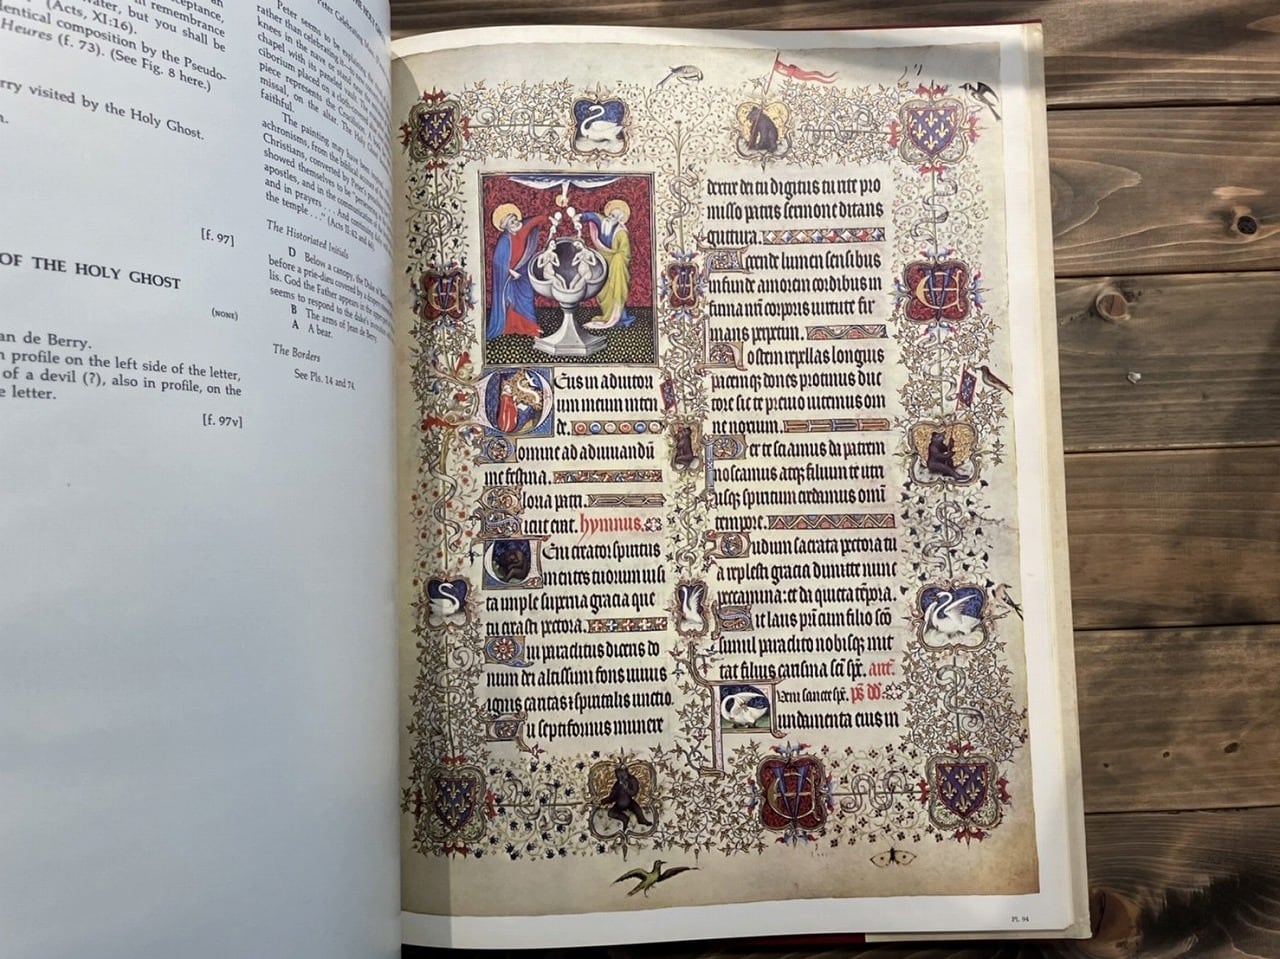 (Acts, XI:16).
ater, but you shall be
in remembrance
dentical composition by the Pseudo-
Heures (f. 73). (See Fig. 8 here.)
rry visited by the Holy Ghost.
[f. 97]
OF THE HOLY GHOST
(NONE)
an de Berry.
n profile on the left side of the letter,
of a devil (?), also in profile, on the
e letter.
[f. 97v]
Peter seems to be
rather than celebrating
knees in the nave or
chapel with its paneled vault.
ciborium placed on a cloth
piece represents the Crucifixion.
missal, on the altar. The Holy Ghost
faithful.
The painting may have been
achronisms, from the biblical
Christians, converted by Peter's
showed themselves to be
apostles, and in the communication
and in prayers . . . And continuing daily
the temple . . ." (Acts II:42 and 46).
The Historiated Initials
D Below a canopy, the Duke of Berry
before a prie-dieu covered by a
lis. God the Father appears in the upper
seems to respond to the duke's
B The arms of Jean de Berry.
A A bear.
The Borders
See Pls. 14 and 74.
Deus in adiutori
um meum inten
de.
Domine ad adiuuandū
me festina.
Gloria patri.
Sicut erat. hymnus.
Ueni creator spiritus
mentes tuorum uisi
ta imple superna gracia que
tu creasti pectora.
Qui paraclitus diceris do
num dei altissimi fons uiuus
ignis caritas et spiritalis unctio.
Tu septiformis munere
dextre dei tu digitus tu rite pro
misso patris sermone ditans
guttura.
Accende lumen sensibus
infunde amorem cordibus in
firma nr̄i corporis uirtute fir
mans perpetim.
Hostem repellas longius
pacemq; dones protinus duc
tore sic te preuio uitemus om
ne noxium.
Per te sciamus da patrem
noscamus atq; filium te utri
usq; spiritum credamus omī
tempore.
Dudum sacrata pectora tu
a replesti gracia dimitte nunc
peccamina: et da quieta tēpora.
Sit laus pr̄i cum filio scō
simul paraclito nobisq; mit
tat filius carisma scī sp̄c. ant̄.
Veni sancte sp̄c. ps̄ dd̄.
Fundamenta eius in
Pl. 94